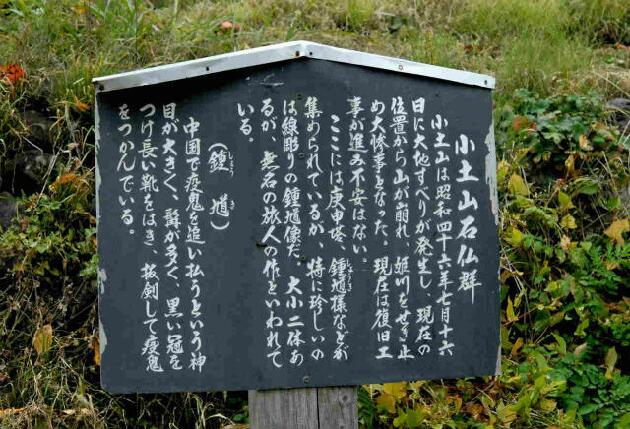 小土山石仏群
小土山は昭和四十六年七月十六
日に大地すべりが発生し、現在の
位置から山が崩れ 姫川をせき止
め大惨事となった。現在は復旧工
事が進み不安はない。
ここには庚申塔、鍾馗様などが
集められているが、特に珍しいの
は線彫りの鍾馗像だ。大小二体あ
るが、無名の旅人の作といわれて
いる。
(鍾馗)
しょうき
中国で疫鬼を追い払うという神
目が大きく、髯が多く、黒い冠を
つけ長い靴をはき、抜剣して疫鬼
をつかんでいる。